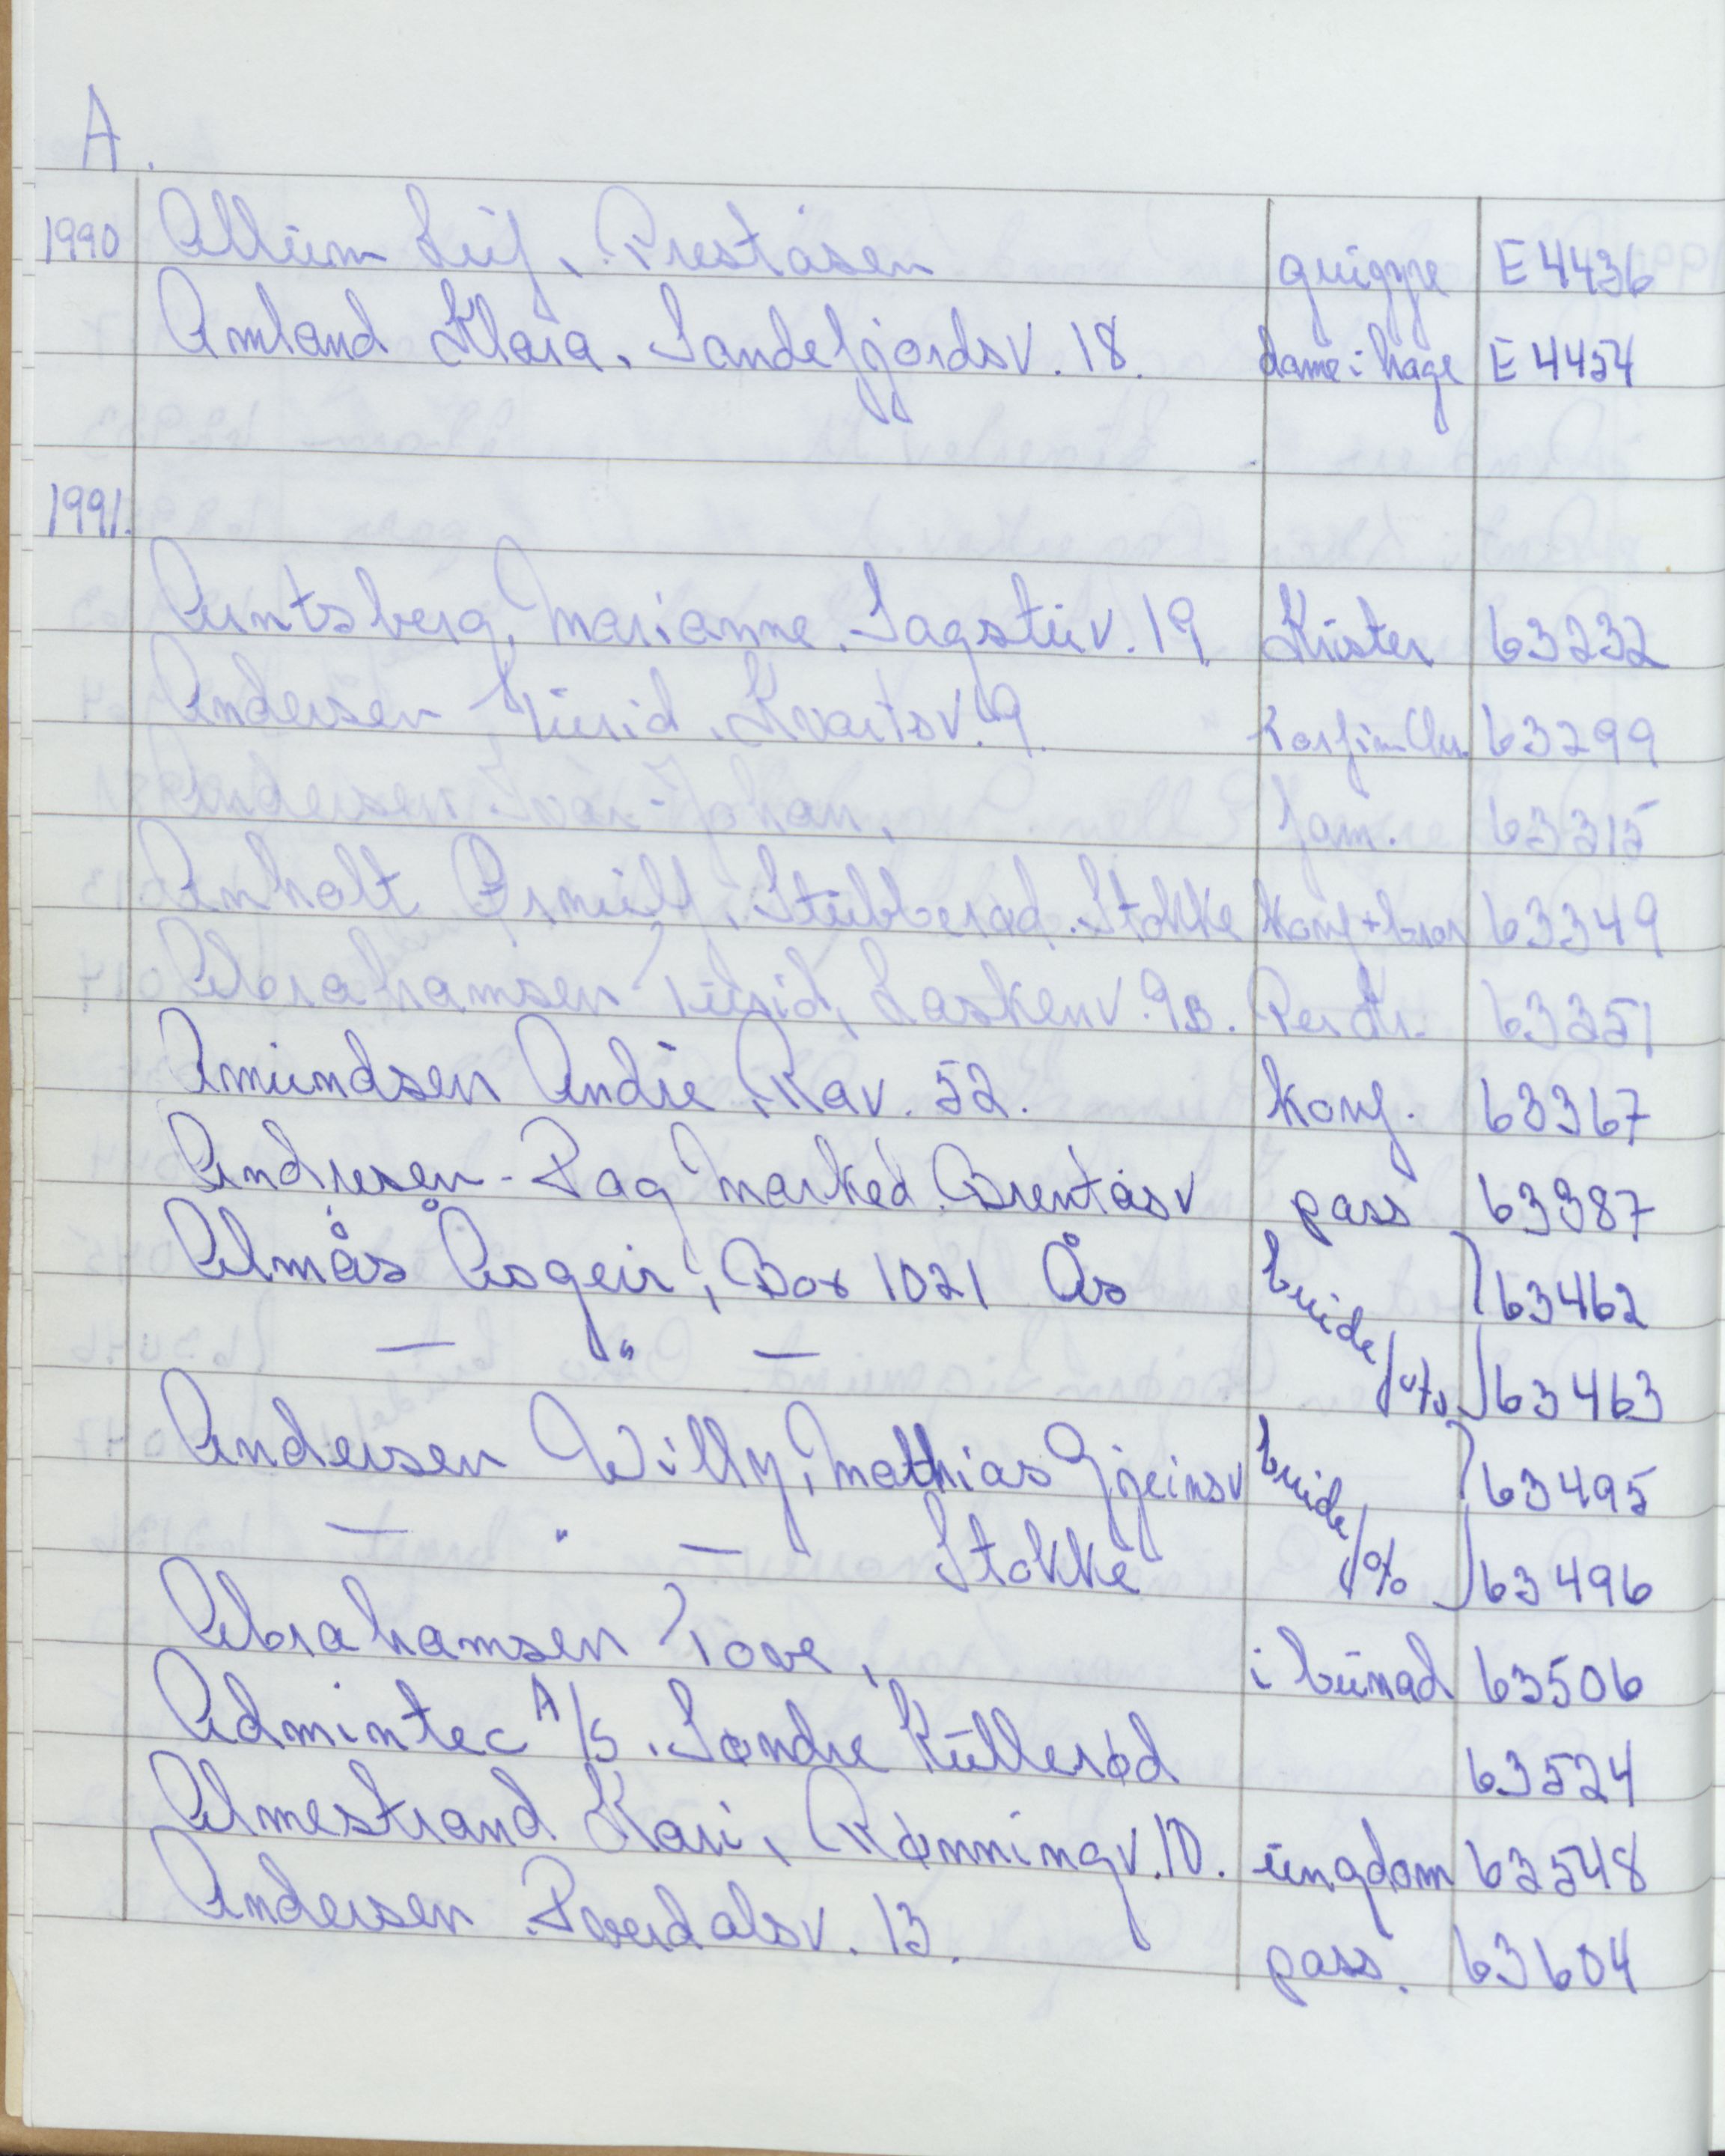 A.
1990 Allum Leif, Preståsen gruppe E 4436
Amland Klara, Sandefjordsv. 18. dame i hage E 4454
1991.
Arntsberg, Marianne. Sagstuv. 19 Krister 63232
Andersen Turid, Kvartsv. 9. 63299
Andersen Ivar-Johan, fam. 63315
Anholt Arnulf, Stubberød. Stokke konf + bror 63349
Abrahamsen Turid, Laskenv. 9B. Portr. 63351
Amundsen André, Rav. 52. konf. 63367
Andresen - Dag Marked. Brentåsv pass 63387
Almås Asgeir, Box 1021 Ås brude 63462
— " — 63463
Andersen Willy, Mathias Gjeinsv brude 63495
— " — Stokke 63496
Abrahamsen Tove, i bunad 63506
Admintec A/S. Søndre Kullerød 63524
Almestrand Kari, Rønningv. 10. ungdom 63548
Andersen Dverdalsv. 13. pass. 63604